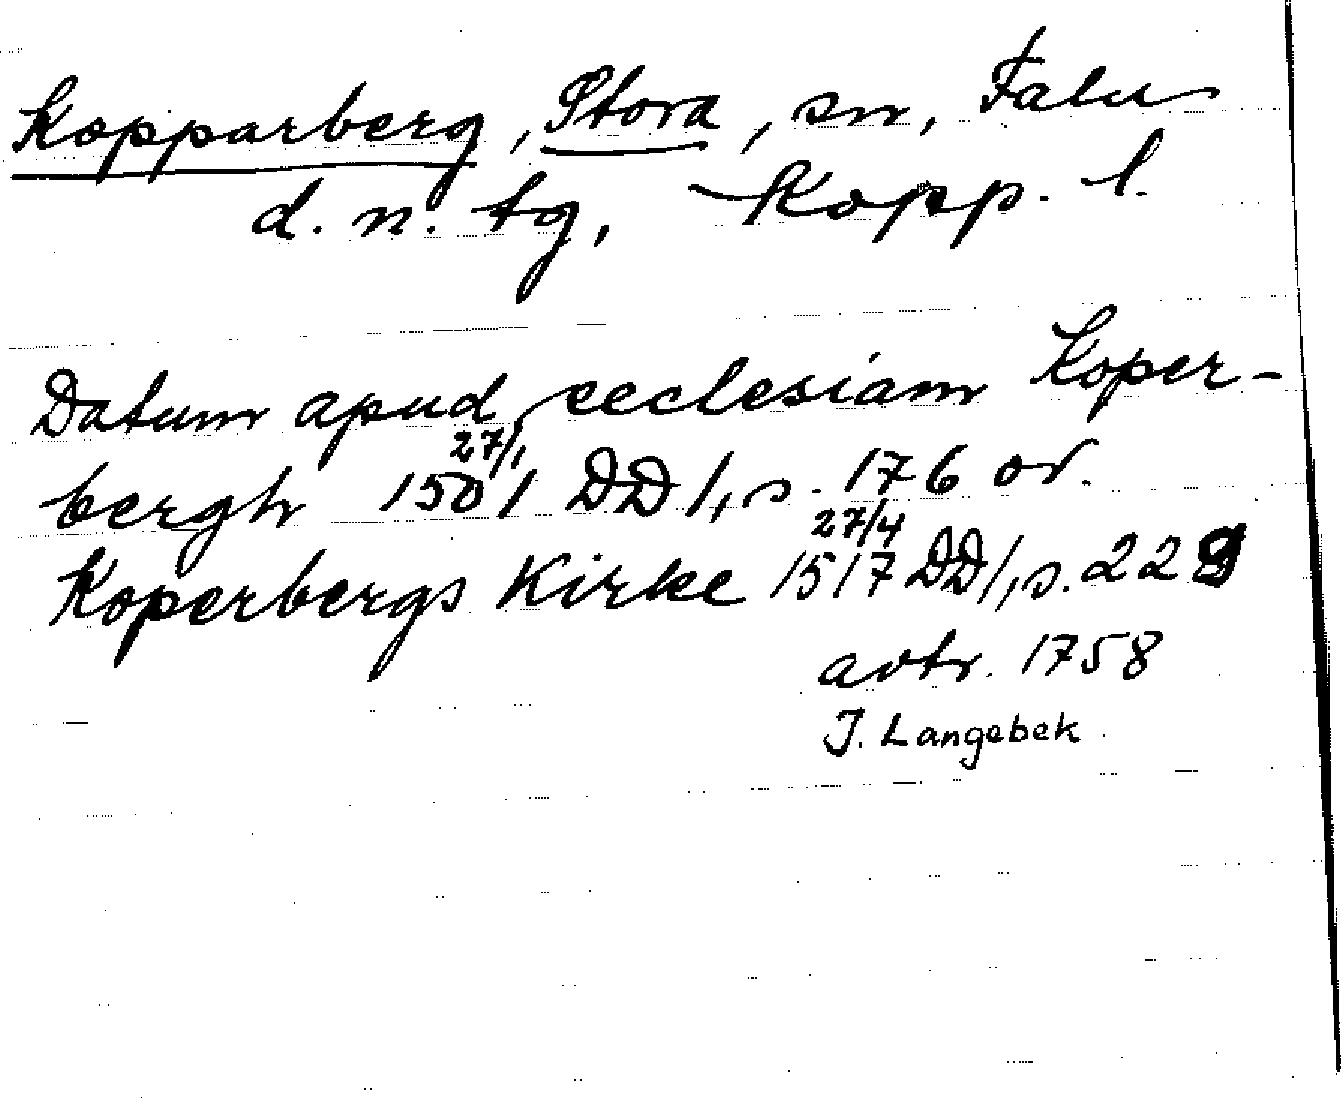 Kopparberg, Stora, sn, Falu
d. n. tg, Kopp. l.
Datum apud ecclesiam Koper-
bergh 27/1 1501 DD 1, s. 176 or.
Koperbergs Kirke 27/4 1517 DD 1, s. 229
avtr. 1758
J. Langebek